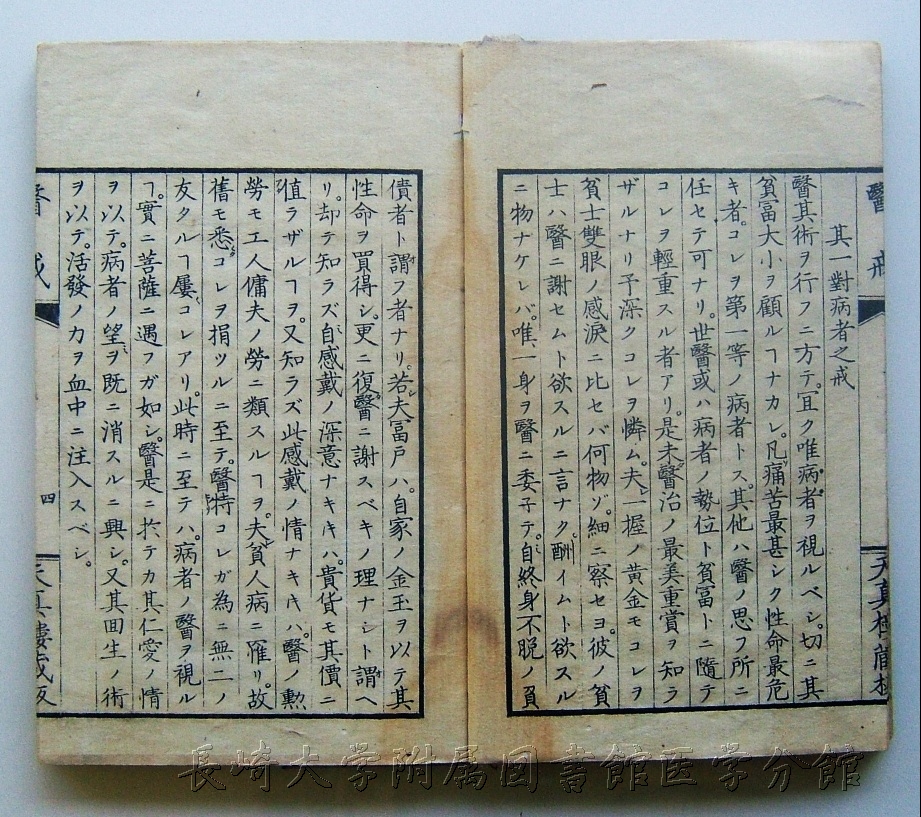 醫戒
天真樓藏板
其一對病者之戒
醫其術ヲ行フニ方テ。宜ク唯病者ヲ視ルベシ。切ニ其
貧冨大小ヲ顧ルヿナカレ。凡痛苦最甚シク性命最危
キ者。コレヲ第一等ノ病者トス。其他ハ醫ノ思フ所ニ
任セテ可ナリ。世醫或ハ病者ノ勢位ト貧冨トニ隨テ
コレヲ輕重スル者アリ。是未醫治ノ最美重賞ヲ知ラ
ザルナリ予深クコレヲ憐ム。夫一握ノ黄金モコレヲ
貧士雙眼ノ感淚ニ比セバ何物ゾ。細ニ察セヨ。彼ノ貧
士ハ醫ニ謝セムト欲スルニ言ナク。酬イムト欲スル
ニ物ナケレバ。唯一身ヲ醫ニ委子テ。自終身不脱ノ負
債者ト謂フ者ナリ。若夫冨戸ハ。自家ノ金玉ヲ以テ其
性命ヲ買得シ。更ニ復醫ニ謝スベキノ理ナシト謂ヘ
リ。却テ知ラズ自感戴ノ深意ナキキハ。貴貨モ其價ニ
値ラザルヿヲ。又知ラズ此感戴ノ情ナキキハ。醫ノ勲
勞モ工人傭夫ノ勞ニ類スルヿヲ。夫貧人病ニ罹リ。故
舊モ悉コレヲ捐ツルニ至テ。醫特コレガ為ニ無二ノ
友タルヿ屢コレアリ。此時ニ至テハ。病者ノ醫ヲ視ル
ヿ。實ニ菩薩ニ遇フガ如シ。醫是ニ於テカ其仁愛ノ情
ヲ以テ。病者ノ望ヲ既ニ消スルニ興シ。又其回生ノ術
ヲ以テ。活發ノ力ヲ血中ニ注入スベシ。
醫戒
四
天真樓藏板
長崎大学附属図書館医学分館